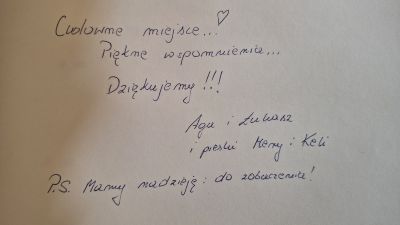 Cudowne miejsce...♡
Piękne wspomnienia...
Dziękujemy!!!
Aga i Łukasz
i pieski Meny i Keli
P.S. Mamy nadzieję: do zobaczenia!